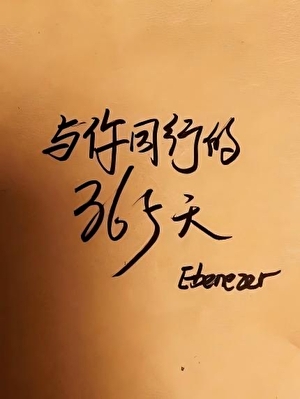 与你同行的
365天
Ebenezer